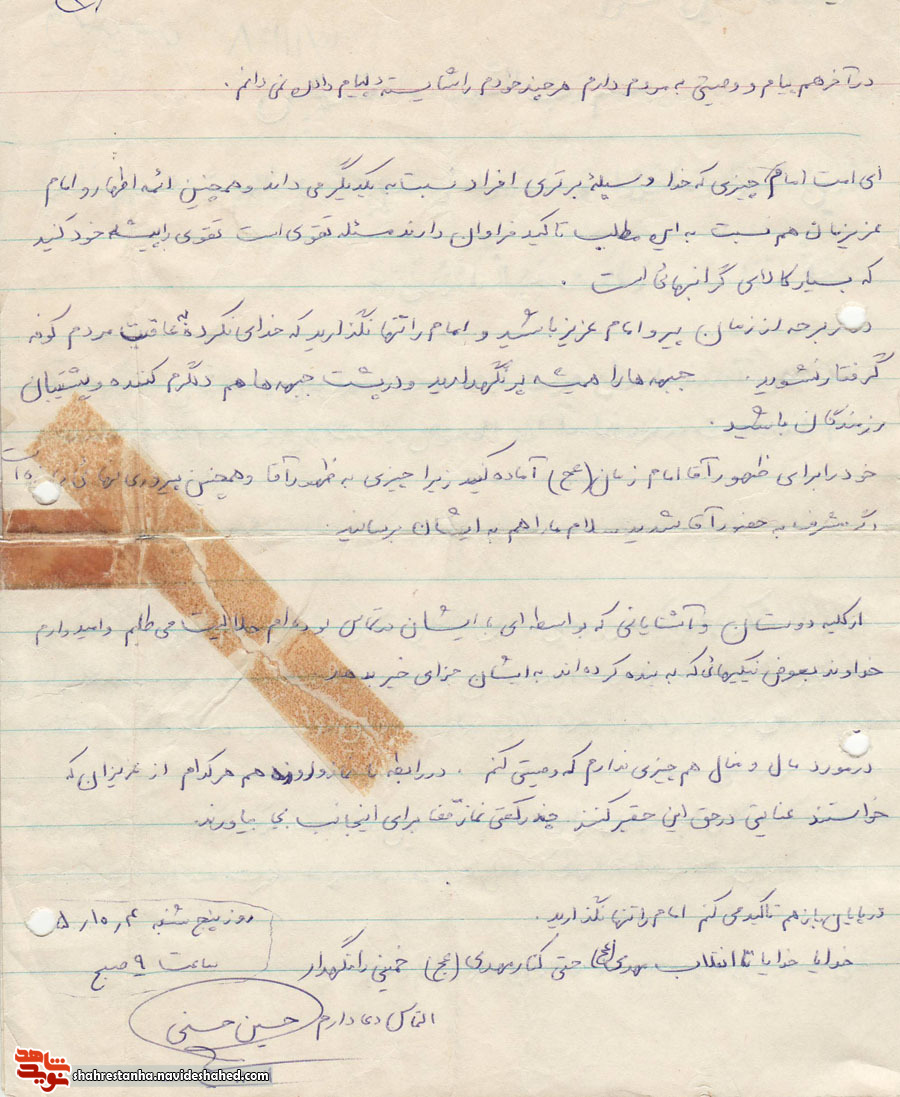 در آخر هم پیام و وصیتی به مردم دارم هر چند خودم را شایسته پیام دادن نمی دانم .
ای امت امام چیزی که خدا وسیلهٔ برتری افراد نسبت به یکدیگر می داند و همچنین ائمه اطهار و امام
عزیزمان هم نسبت به این مطلب تاکید فراوان دارند مسئله تقوی است تقوی را پیشه خود کنید
که بسیار کالای گرانبهائی است .
در هر برحه از زمان پیرو امام عزیز باشید و امام را تنها نگذارید که خدای نکرده به عاقبت مردم کوفه
گرفتار نشوید . جبهه ها را همیشه پر نگهدارید و در پشت جبهه ها هم دلگرم کننده و پشتیبان
رزمندگان باشید .
خود را برای ظهور آقا امام زمان (عج) آماده کنید زیرا چیزی به ظهور آقا و همچنین پیروزی نهائی
اگر مشرف به حضور آقا شدید سلام ما را هم به ایشان برسانید
از کلیه دوستان و آشنایانی که بواسطه ای با ایشان در تماس بوده ام حلالیت می طلبم و امیدوارم
خداوند بعوض نیکیهائی که به بنده کرده اند به ایشان جزای خیر بدهد
در مورد مال و منال هم چیزی ندارم که وصیتی کنم . در رابطه با نماز و روزه هم هر کدام از عزیزان که
خواستند عنایتی در حق این حقیر کنند چند رکعتی نماز قضا برای اینجانب بجا بیاورند.
در پایان باز هم تاکید می کنم امام را تنها نگذارید.
روز پنج شنبه
خدایا خدایا تا انقلاب مهدی (عج) حتی کنار مهدی (عج) خمینی را نگهدار
ساعت ۹ صبح
التماس دعا دارم حسین حسنی
شاهد
نوید
shahrestanha.navideshahed.com